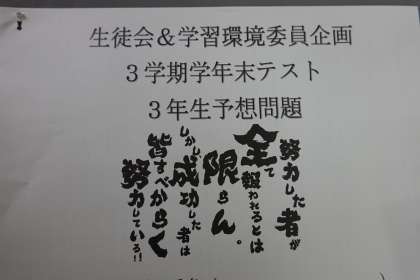 生徒会＆学習環境委員企画
3学期学年末テスト
3年生予想問題
努力した者が
全て報われるとは
限らん。
しかし
成功した者は
皆すべからく
努力している!!